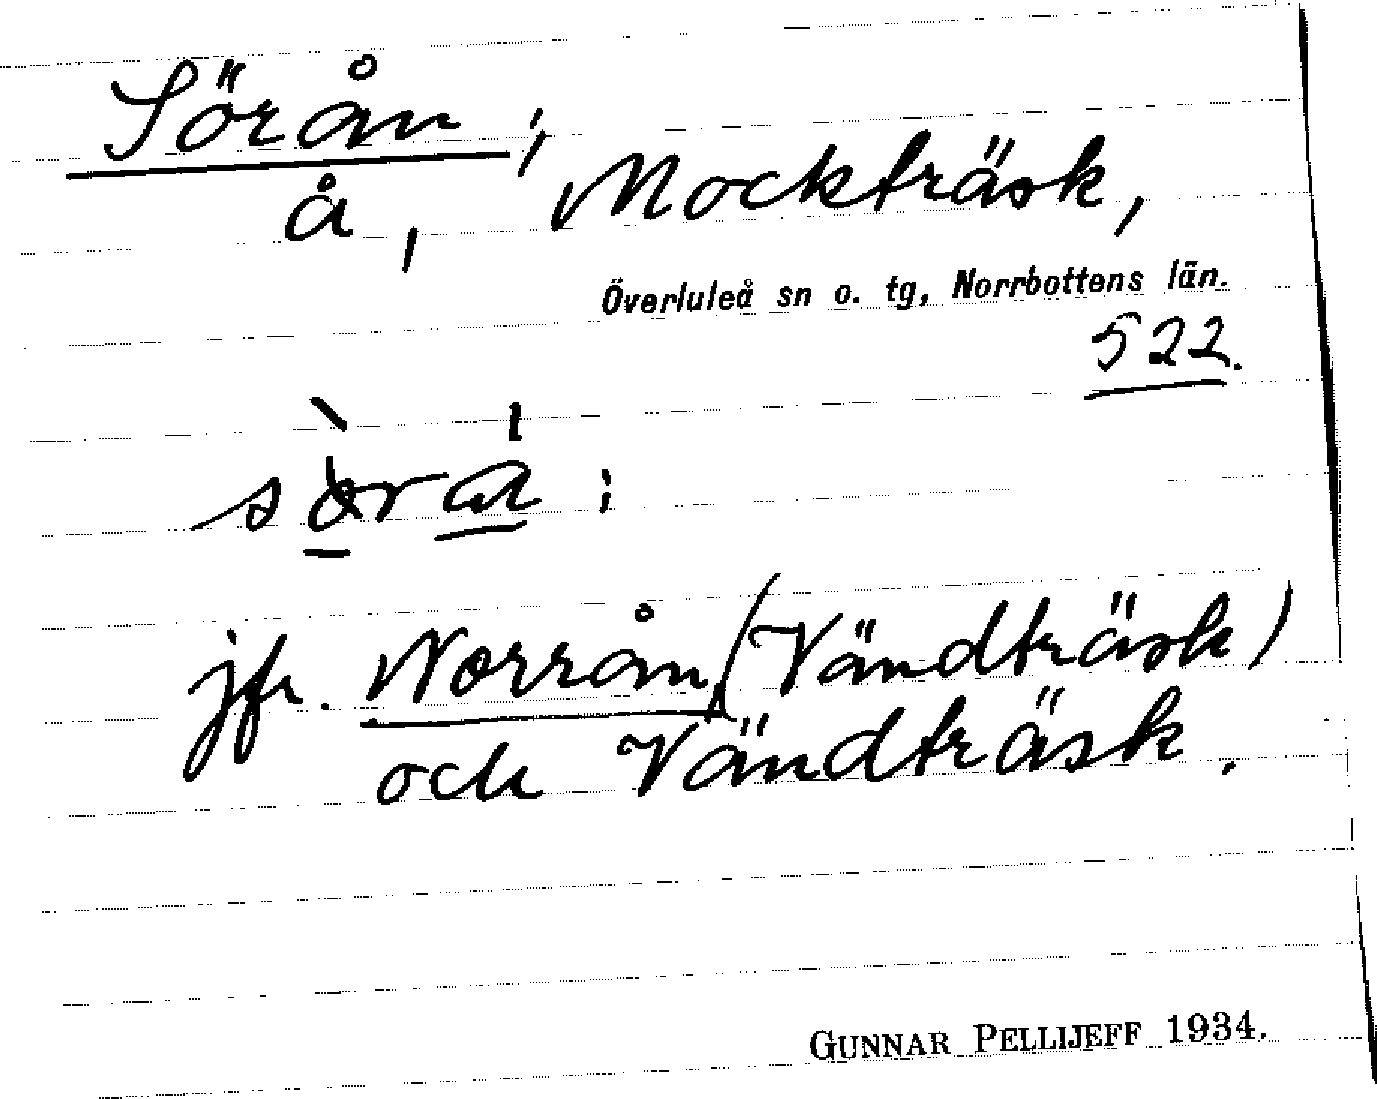 Sörån;
å, Mockträsk,
Överluleå sn o. tg, Norrbottens län.
522.
jfr. Norrån (Vändträsk)
och Vändträsk.
GUNNAR PELLIJEFF 1934.